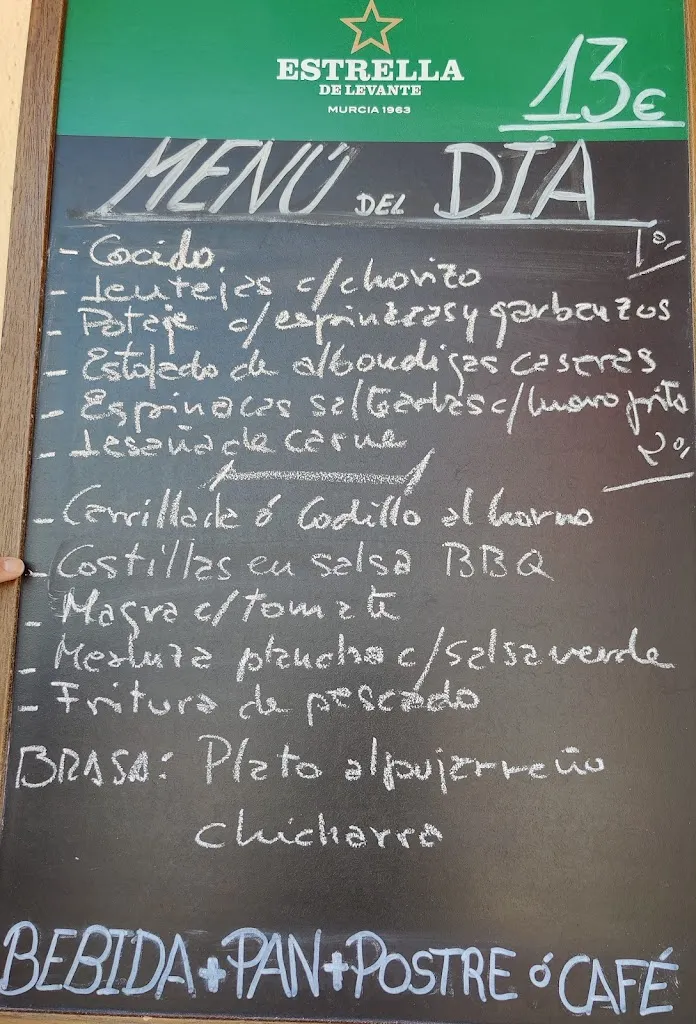 ESTRELLA
DE LEVANTE
MURCIA 1963
13€
MENÚ DEL DÍA
1º
- Cocido
- Lentejas c/chorizo
- Potaje c/espinacas y garbanzos
- Estofado de albondigas caseras
- Espinacas salteadas c/huevo frito
- Lasaña de carne
2º
- Carrillada ó Codillo al horno
- Costillas en salsa BBQ
- Magra c/tomate
- Merluza plancha c/salsa verde
- Fritura de pescado
BRASA: Plato alpujarreño
chicharra
BEBIDA+PAN+POSTRE ó CAFÉ